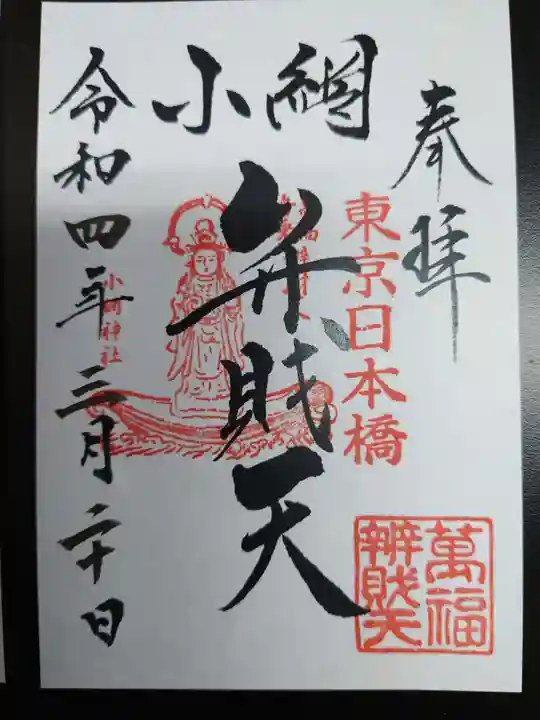 奉拝
東京日本橋
萬福
辨財天
小網
弁財天
小網神社
令和四年三月二十日